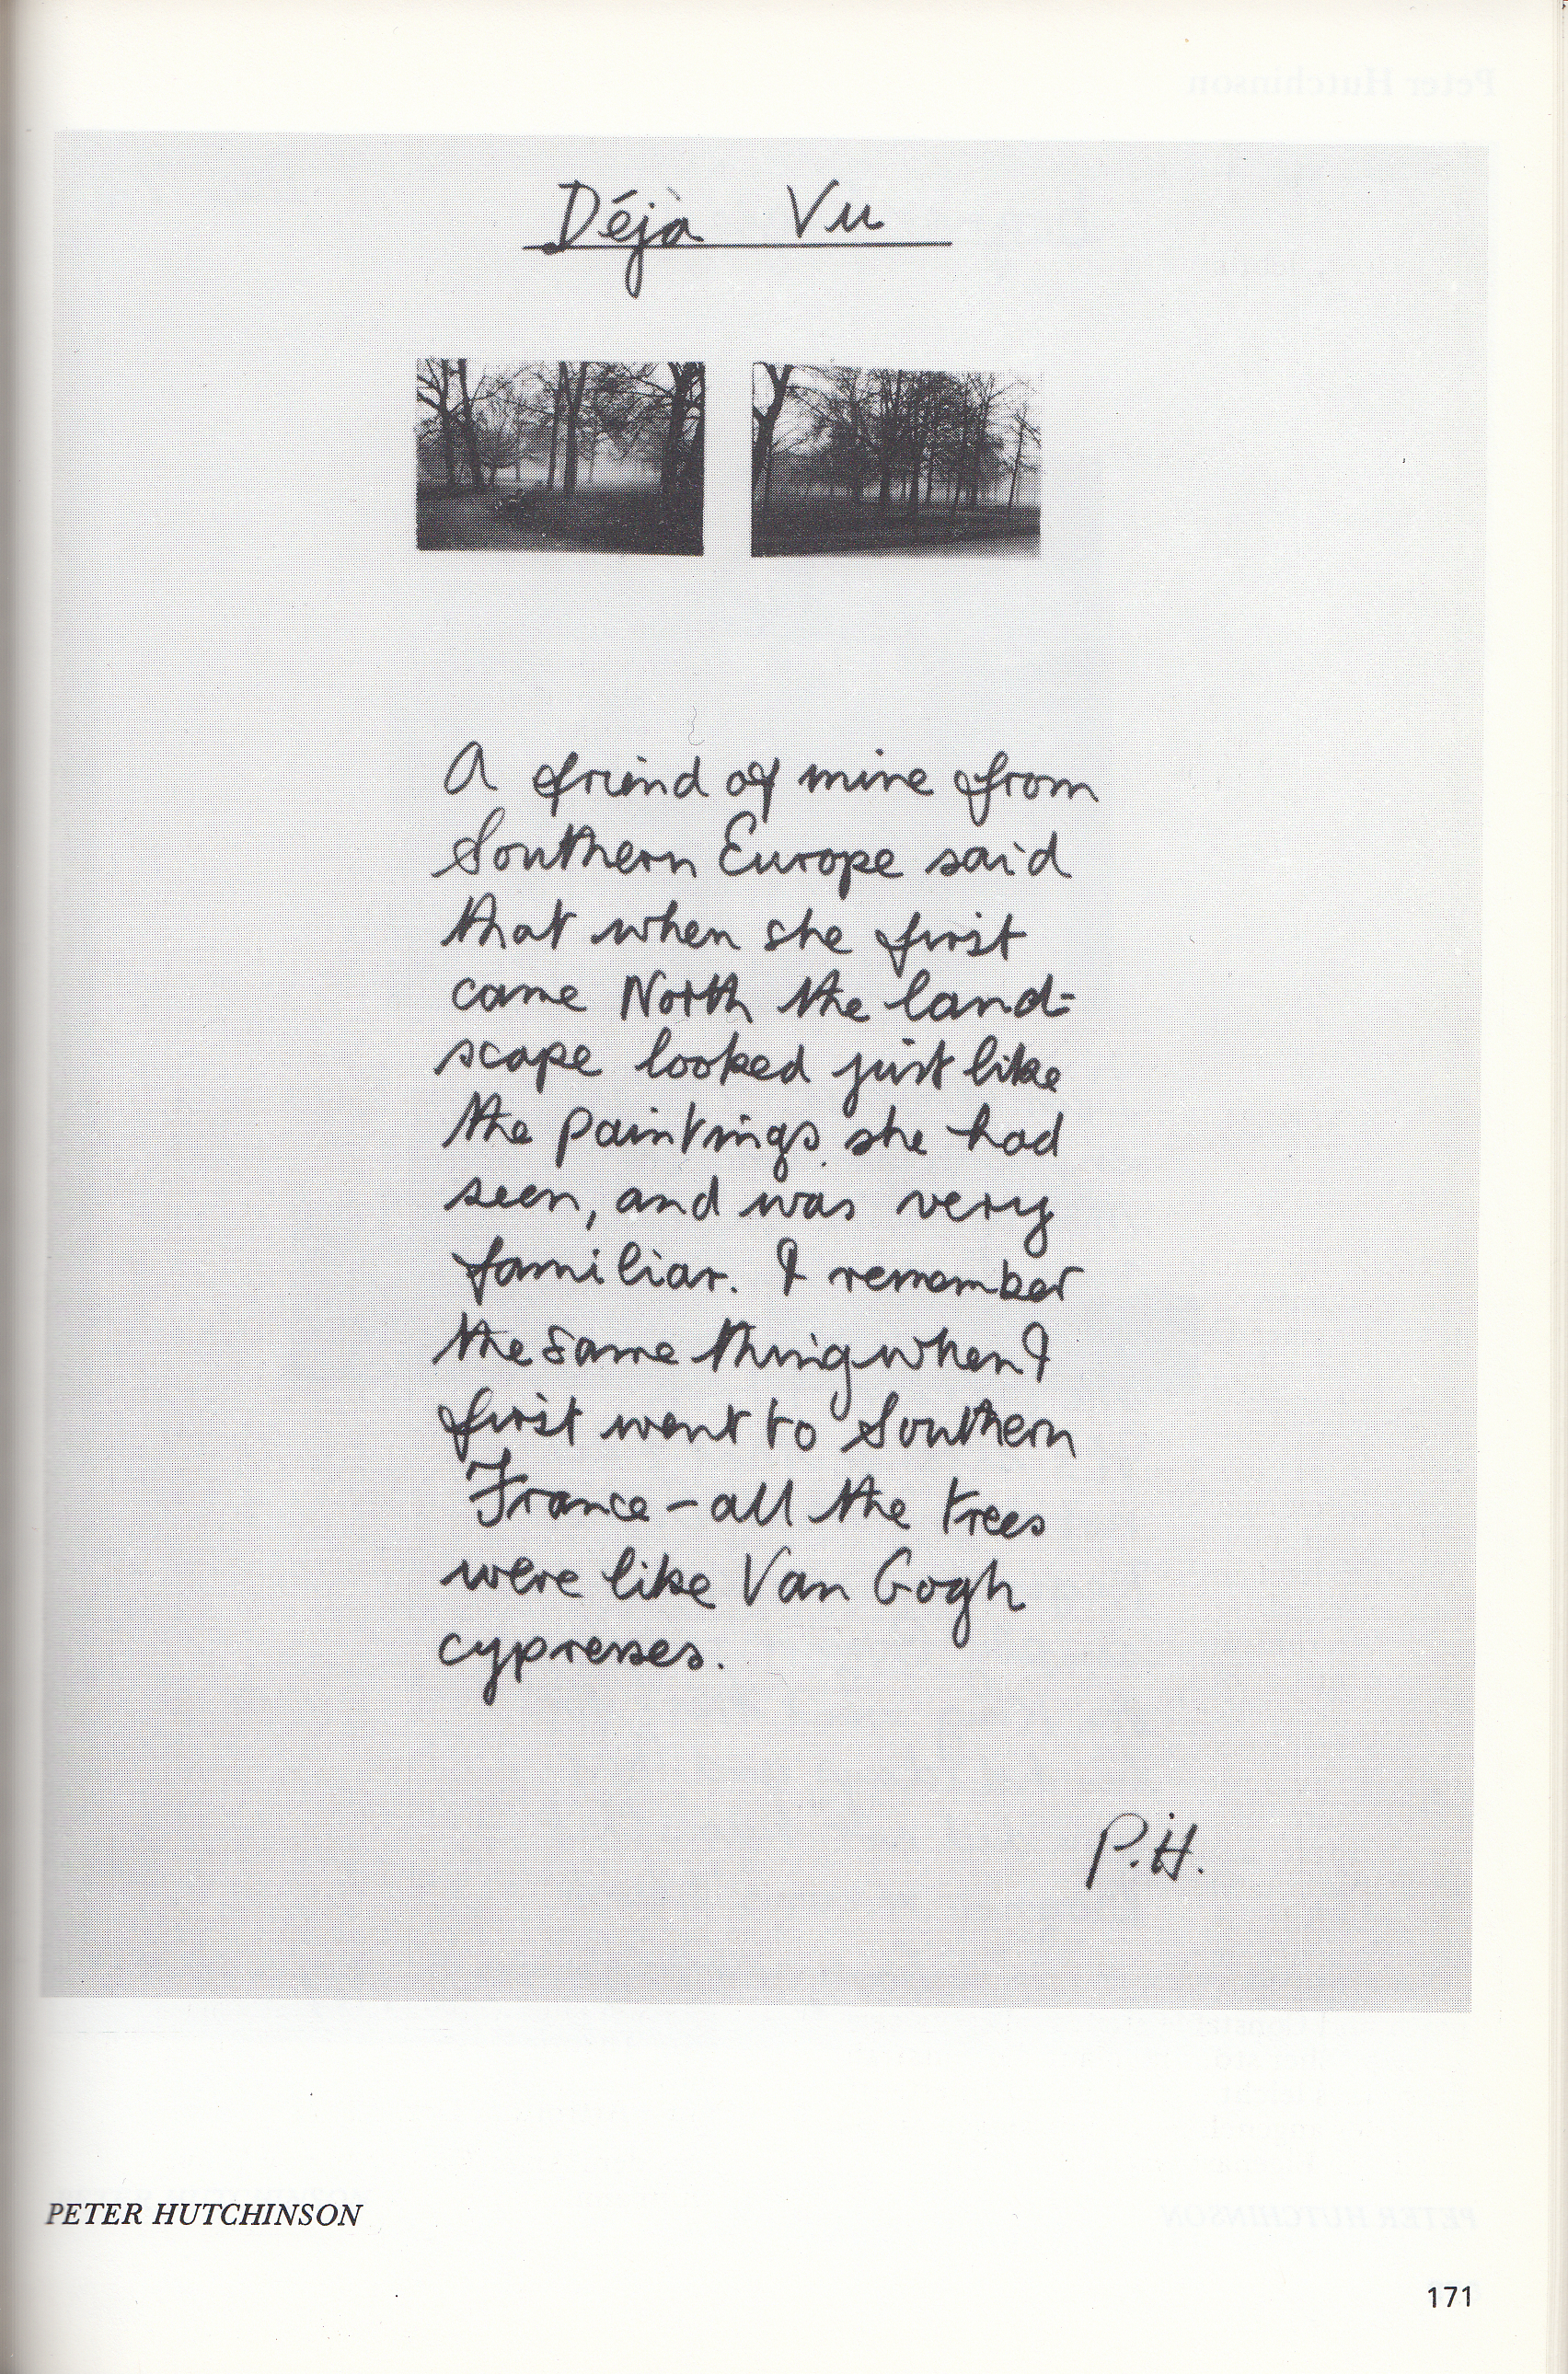 Déjà Vu
A friend of mine from
Southern Europe said
that when she first
came North the land=
scape looked just like
the paintings she had
seen, and was very
familiar. I remember
the same thing when I
first went to Southern
France - all the trees
were like Van Gogh
cypresses.
P.H.
PETER HUTCHINSON
171